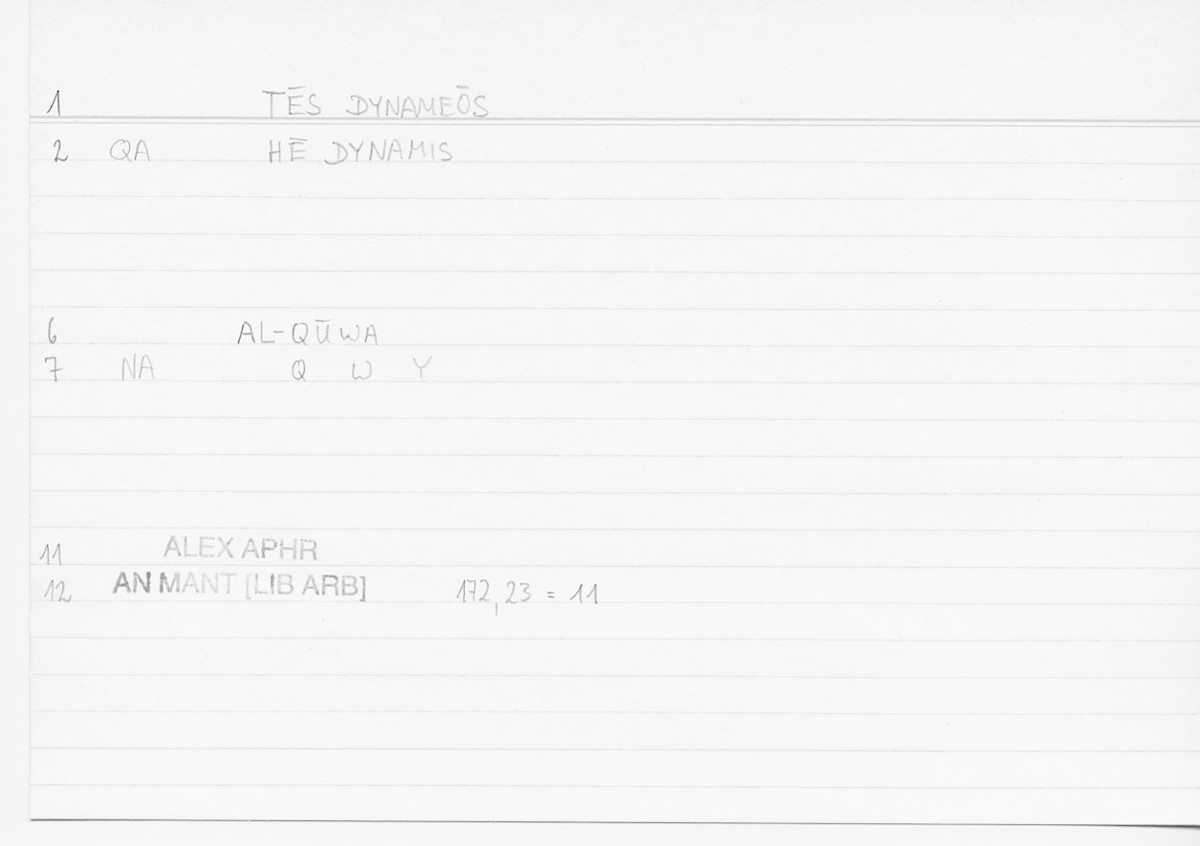 1 TĒS DYNAMEŌS
2 QA HĒ DYNAMIS
6 AL-QŪWA
7 NA Q W Y
11 ALEX APHR
12 AN MANT [LIB ARB] 172,23 = 11